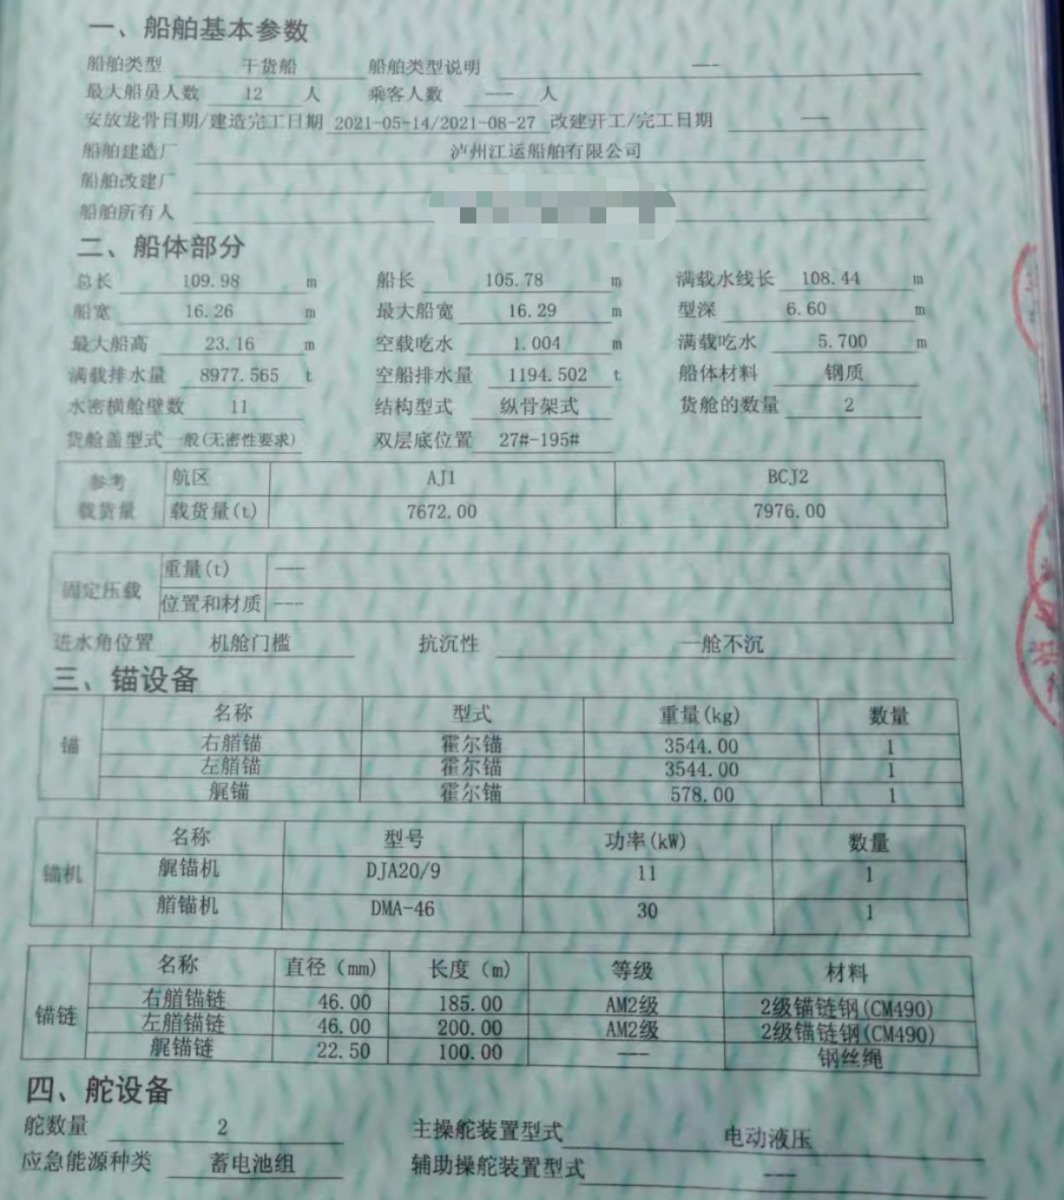 一、船舶基本参数
船舶类型 干货船 船舶类型说明 ---
最大船员人数 12 人 乘客人数 --- 人
安放龙骨日期/建造完工日期 2021-05-14/2021-08-27 改建开工/完工日期 ---
船舶建造厂 泸州江运船舶有限公司
船舶改建厂
船舶所有人
二、船体部分
总长 109.98 m 船长 105.78 m 满载水线长 108.44 m
船宽 16.26 m 最大船宽 16.29 m 型深 6.60 m
最大船高 23.16 m 空载吃水 1.004 m 满载吃水 5.700 m
满载排水量 8977.565 t 空船排水量 1194.502 t 船体材料 钢质
水密横舱壁数 11 结构型式 纵骨架式 货舱的数量 2
货舱盖型式 一般(无密性要求) 双层底位置 27#-195#
参考 航区 AJ1 BCJ2
载货量 载货量(t) 7672.00 7976.00
固定压载 重量(t) ---
位置和材质 ---
进水角位置 机舱门槛 抗沉性 一舱不沉
三、锚设备
锚 名称 型式 重量(kg) 数量
右艏锚 霍尔锚 3544.00 1
左艏锚 霍尔锚 3544.00 1
艉锚 霍尔锚 578.00 1
锚机 名称 型号 功率(kW) 数量
艉锚机 DJA20/9 11 1
艏锚机 DMA-46 30 1
锚链 名称 直径(mm) 长度(m) 等级 材料
右艏锚链 46.00 185.00 AM2级 2级锚链钢(CM490)
左艏锚链 46.00 200.00 AM2级 2级锚链钢(CM490)
艉锚链 22.50 100.00 --- 钢丝绳
四、舵设备
舵数量 2 主操舵装置型式 电动液压
应急能源种类 蓄电池组 辅助操舵装置型式 ---